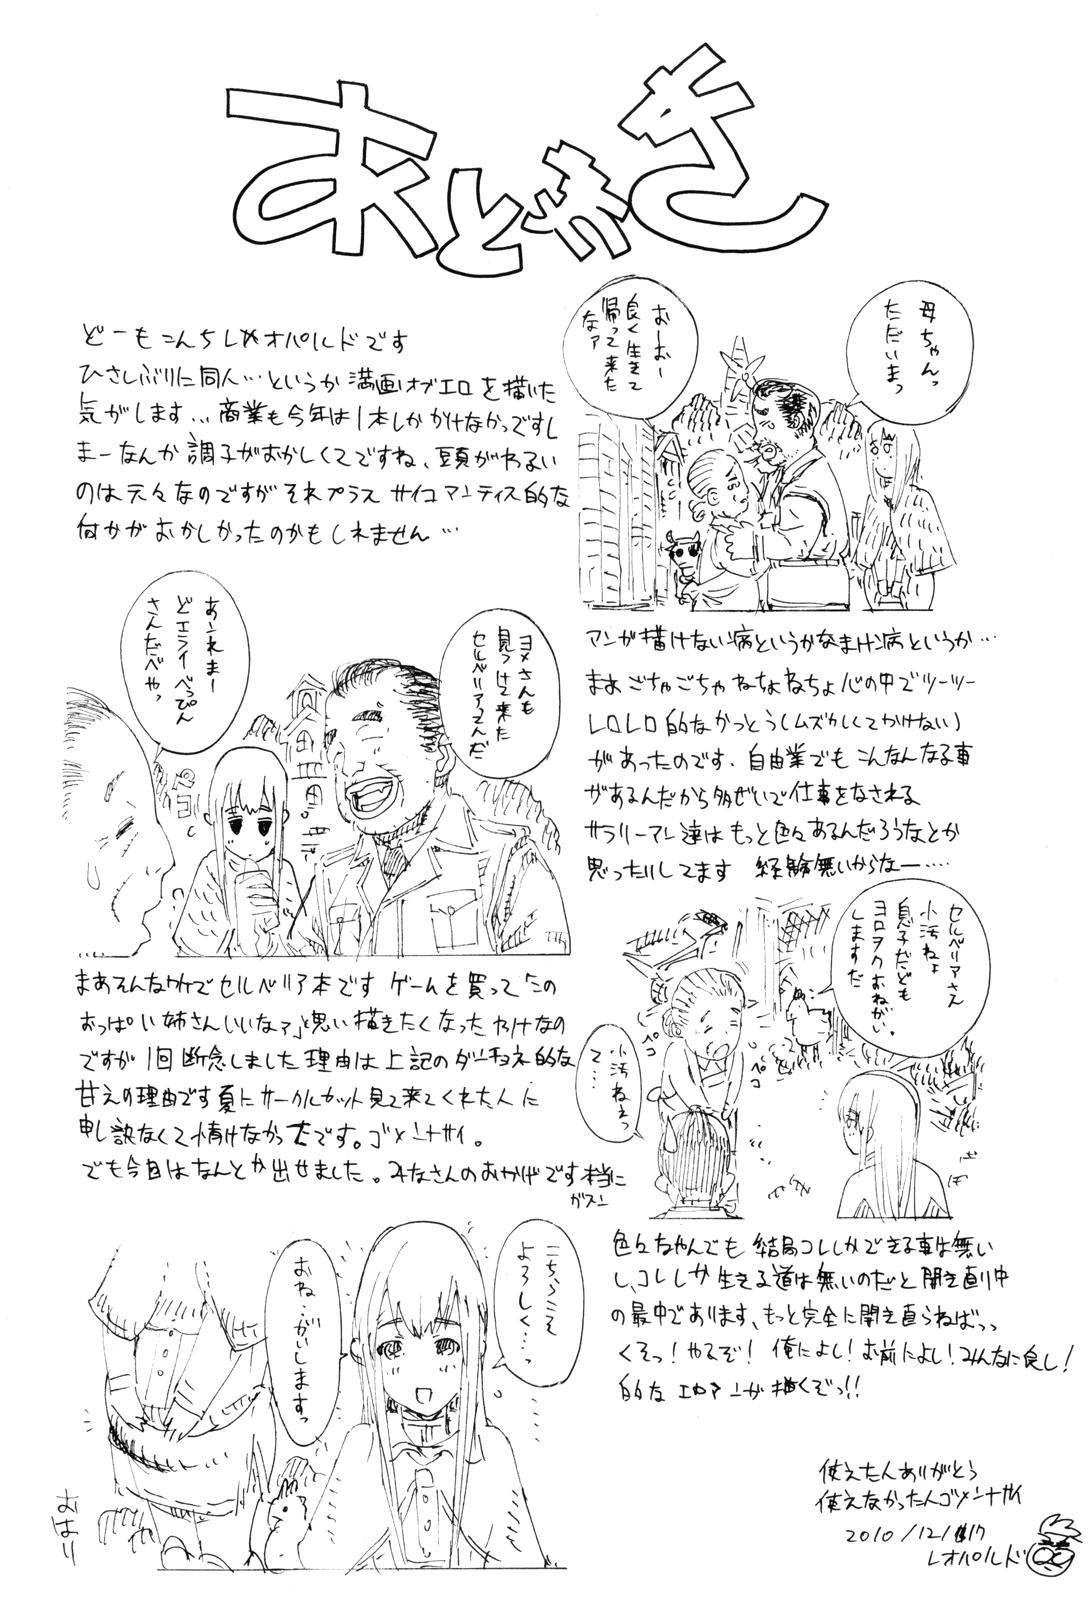 あとがき
どーもこんちレオパルドです
ひさしぶりに同人…というか漫画オブエロを描いた
気がします…商業も今年は1本しかかけなかっですし
まーなんか調子がおかしくてですね、頭がわるい
のは元々なのですがそれプラス サイコマンティス的な
何かがおかしかったのかもしれません…
母ちゃんっ
ただいまっ
おーおー
良く生きて
帰って来た
なァ
マンが描けない病というかなまけ病というか…
まあごちゃごちゃ ねちょねちょ心の中でツーツー
レロレロ的なかっとう(ムズかしくてかけない)
があったのです、自由業でもこんなんなる事
があるんだから多ぜいで仕事をなされる
サラリーマン達はもっと色々あるんだろうなとか
思ったりしてます 経験無いからなー……
ヨメさんも
見つけて来た
セルベリアさんだ
あんれまー
どエライべっぴん
さんだべやっ
まあそんなワケでセルベリア本です ゲームを買って「この
おっぱい姉さんいいなァ」と思い描きたくなったわけなの
ですが1回断念しました理由は上記のダーチョネ的な
甘えの理由です夏にサークルカット見て来てくれた人に
申し訳なくて情けなかったです。ゴメンナサイ。
でも今回はなんとか出せました。みなさんのおかげです本当に
ガスン
セルベリアさん
小汚ねぇ
息子だども
ヨロヲクおねがい
しますだ
ペコ
ペコ
小汚ねぇっ
て…
色々なやんでも 結局コレしかできる事は無い
し、コレしか生きる道は無いのだと開き直り中
の最中であります、もっと完全に開き直らねばっっ
くそっ!やるぞ! 俺によし!お前によし!みんなに良し!
的なエロマンガ描くぞっ!!
こちらこそ
よろしく…っ
おね…がいしますっ
おはり
使えたんありがとう
使えなかったんゴメンナサイ
2010/12/17
レオパルド